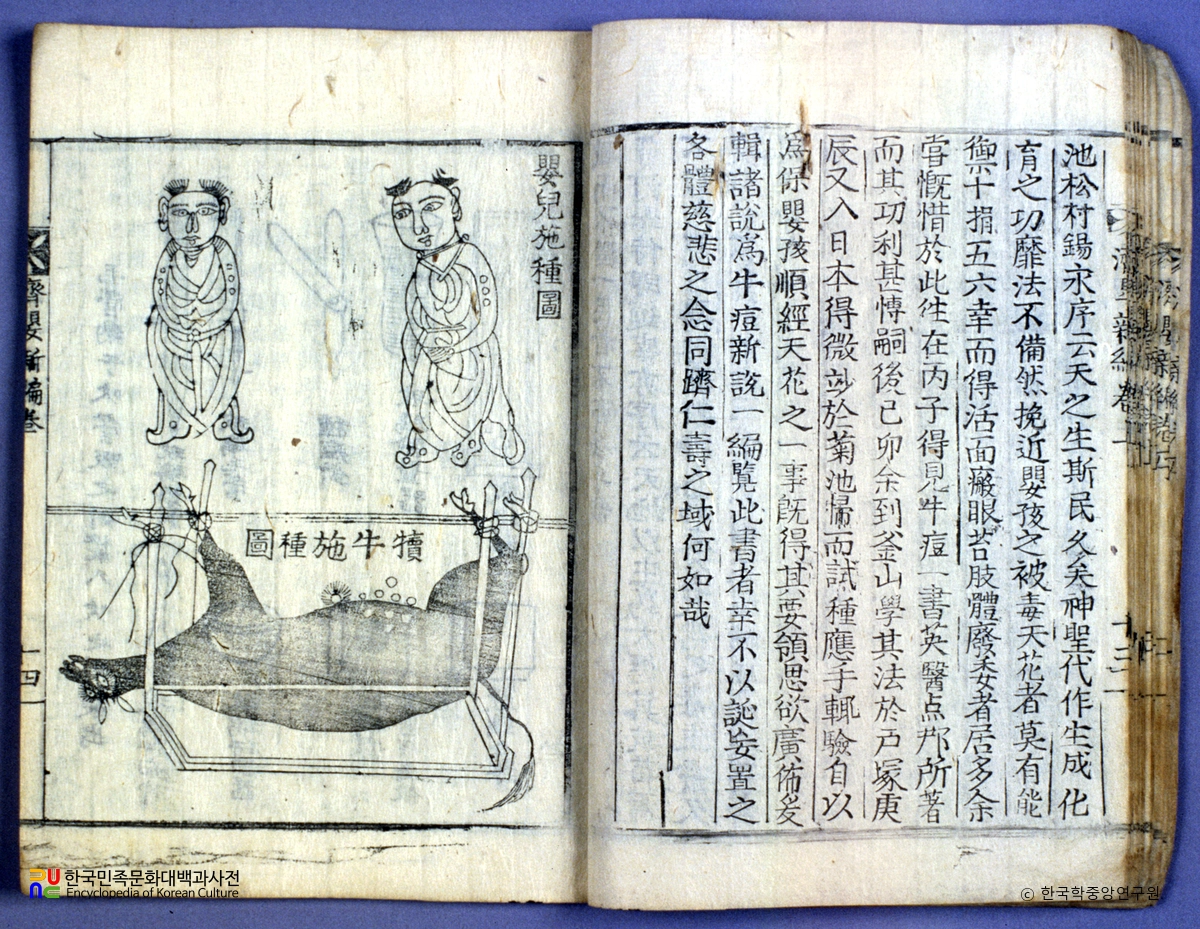 池松村錫永序云天之生斯民久矣神聖代作生成化
育之功靡法不備然挽近嬰孩之被毒天花者莫有能
禦十損五六幸而得活面瘢眼苦肢體廢委者居多余
甞慨惜於此徃在丙子得見牛痘一書英醫点邦所著
而其功利甚博嗣後己卯余到釜山學其法於戶塚庚
辰又入日本得微玅於菊池愽而試種應手輒驗自以
爲保嬰孩順經天花之一事旣得其要領思欲廣佈爰
輯諸說爲牛痘新說一編覽此書者幸不以誕妄置之
各體慈悲之念同躋仁壽之域何如哉
濟嬰新編 卷
十三
嬰兒施種圖
犢牛施種圖
濟嬰新編卷
十四
한국민족문화대백과사전
Encyclopedia of Korean Culture
ⓒ 한국학중앙연구원